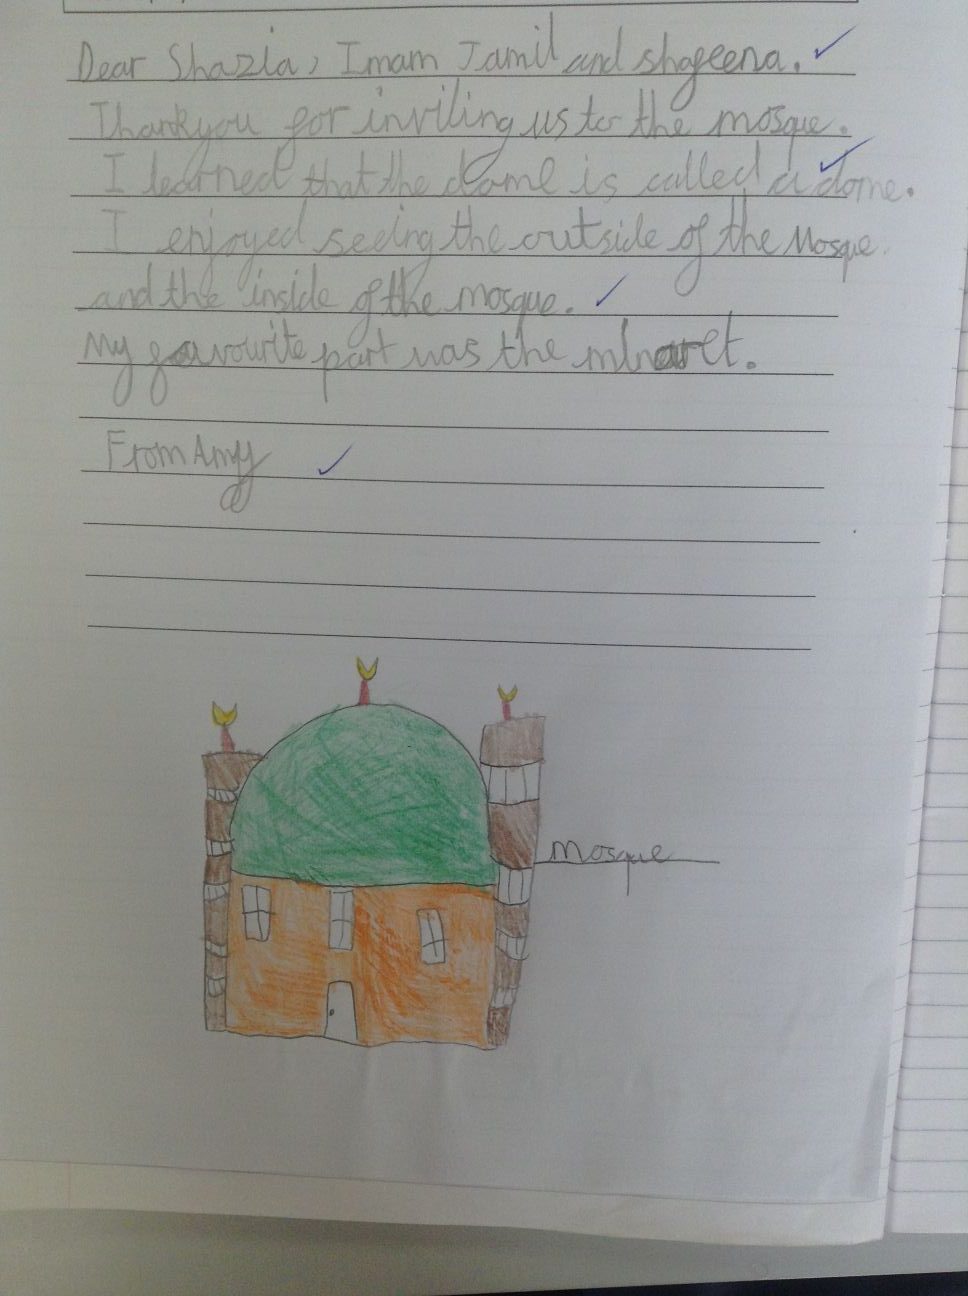 Dear Shazia, Imam Jamil and shageena.
Thankyou for inviting us to the mosque.
I learned that the dome is called a dome.
I enjoyed seeing the outside of the Mosque
and the inside of the mosque.
My favourite part was the minaret.
From Amy
Mosque